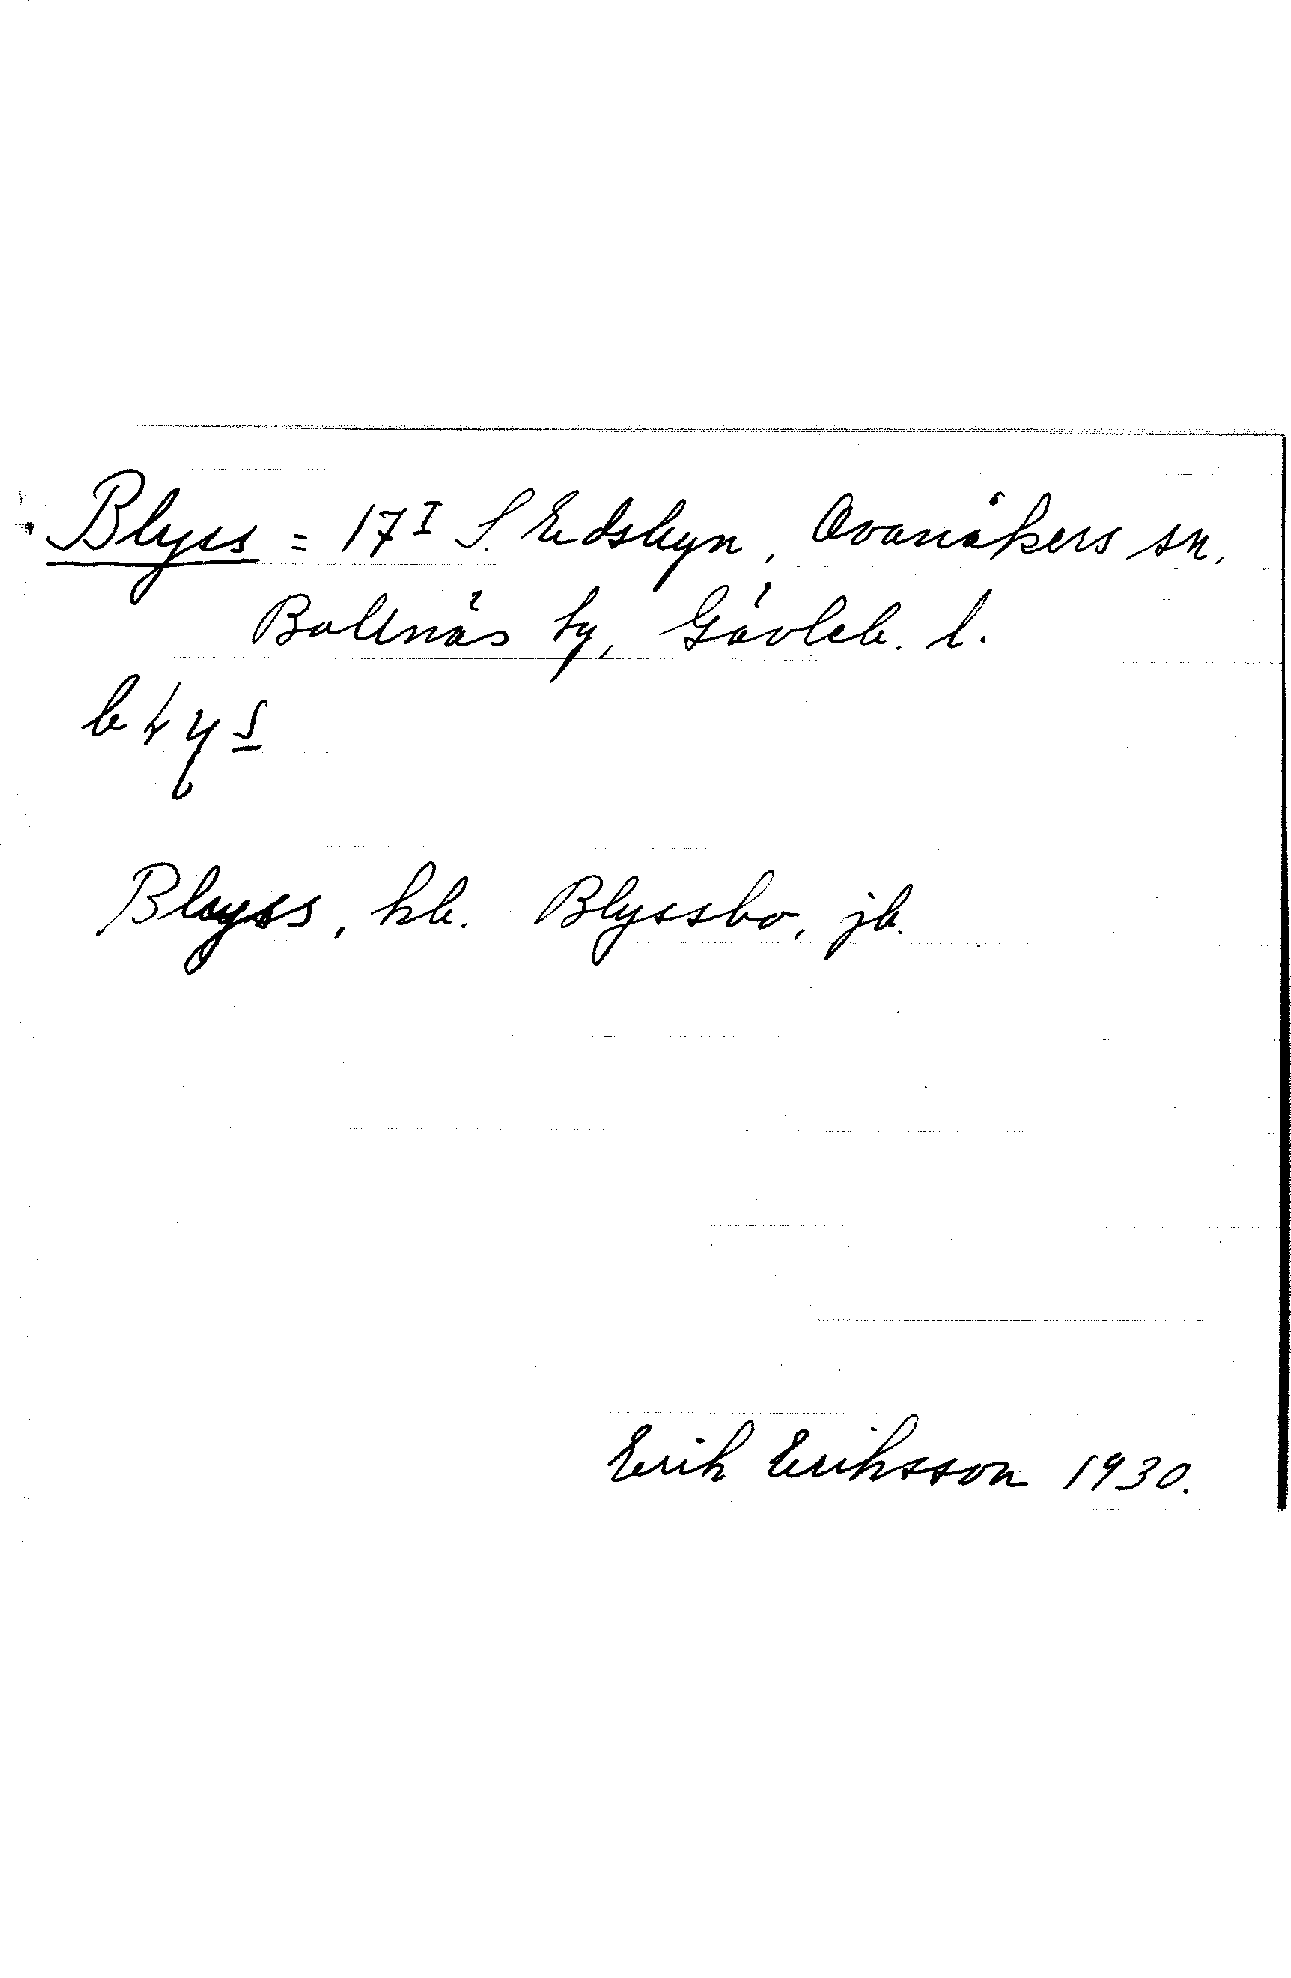 Blyss = 17 I S. Edsbyn, Ovanåkers sn,
Bollnäs tg, Gävleb. l.
Blyss, kb. Blyssbo, jb.
Erik Eriksson 1930.